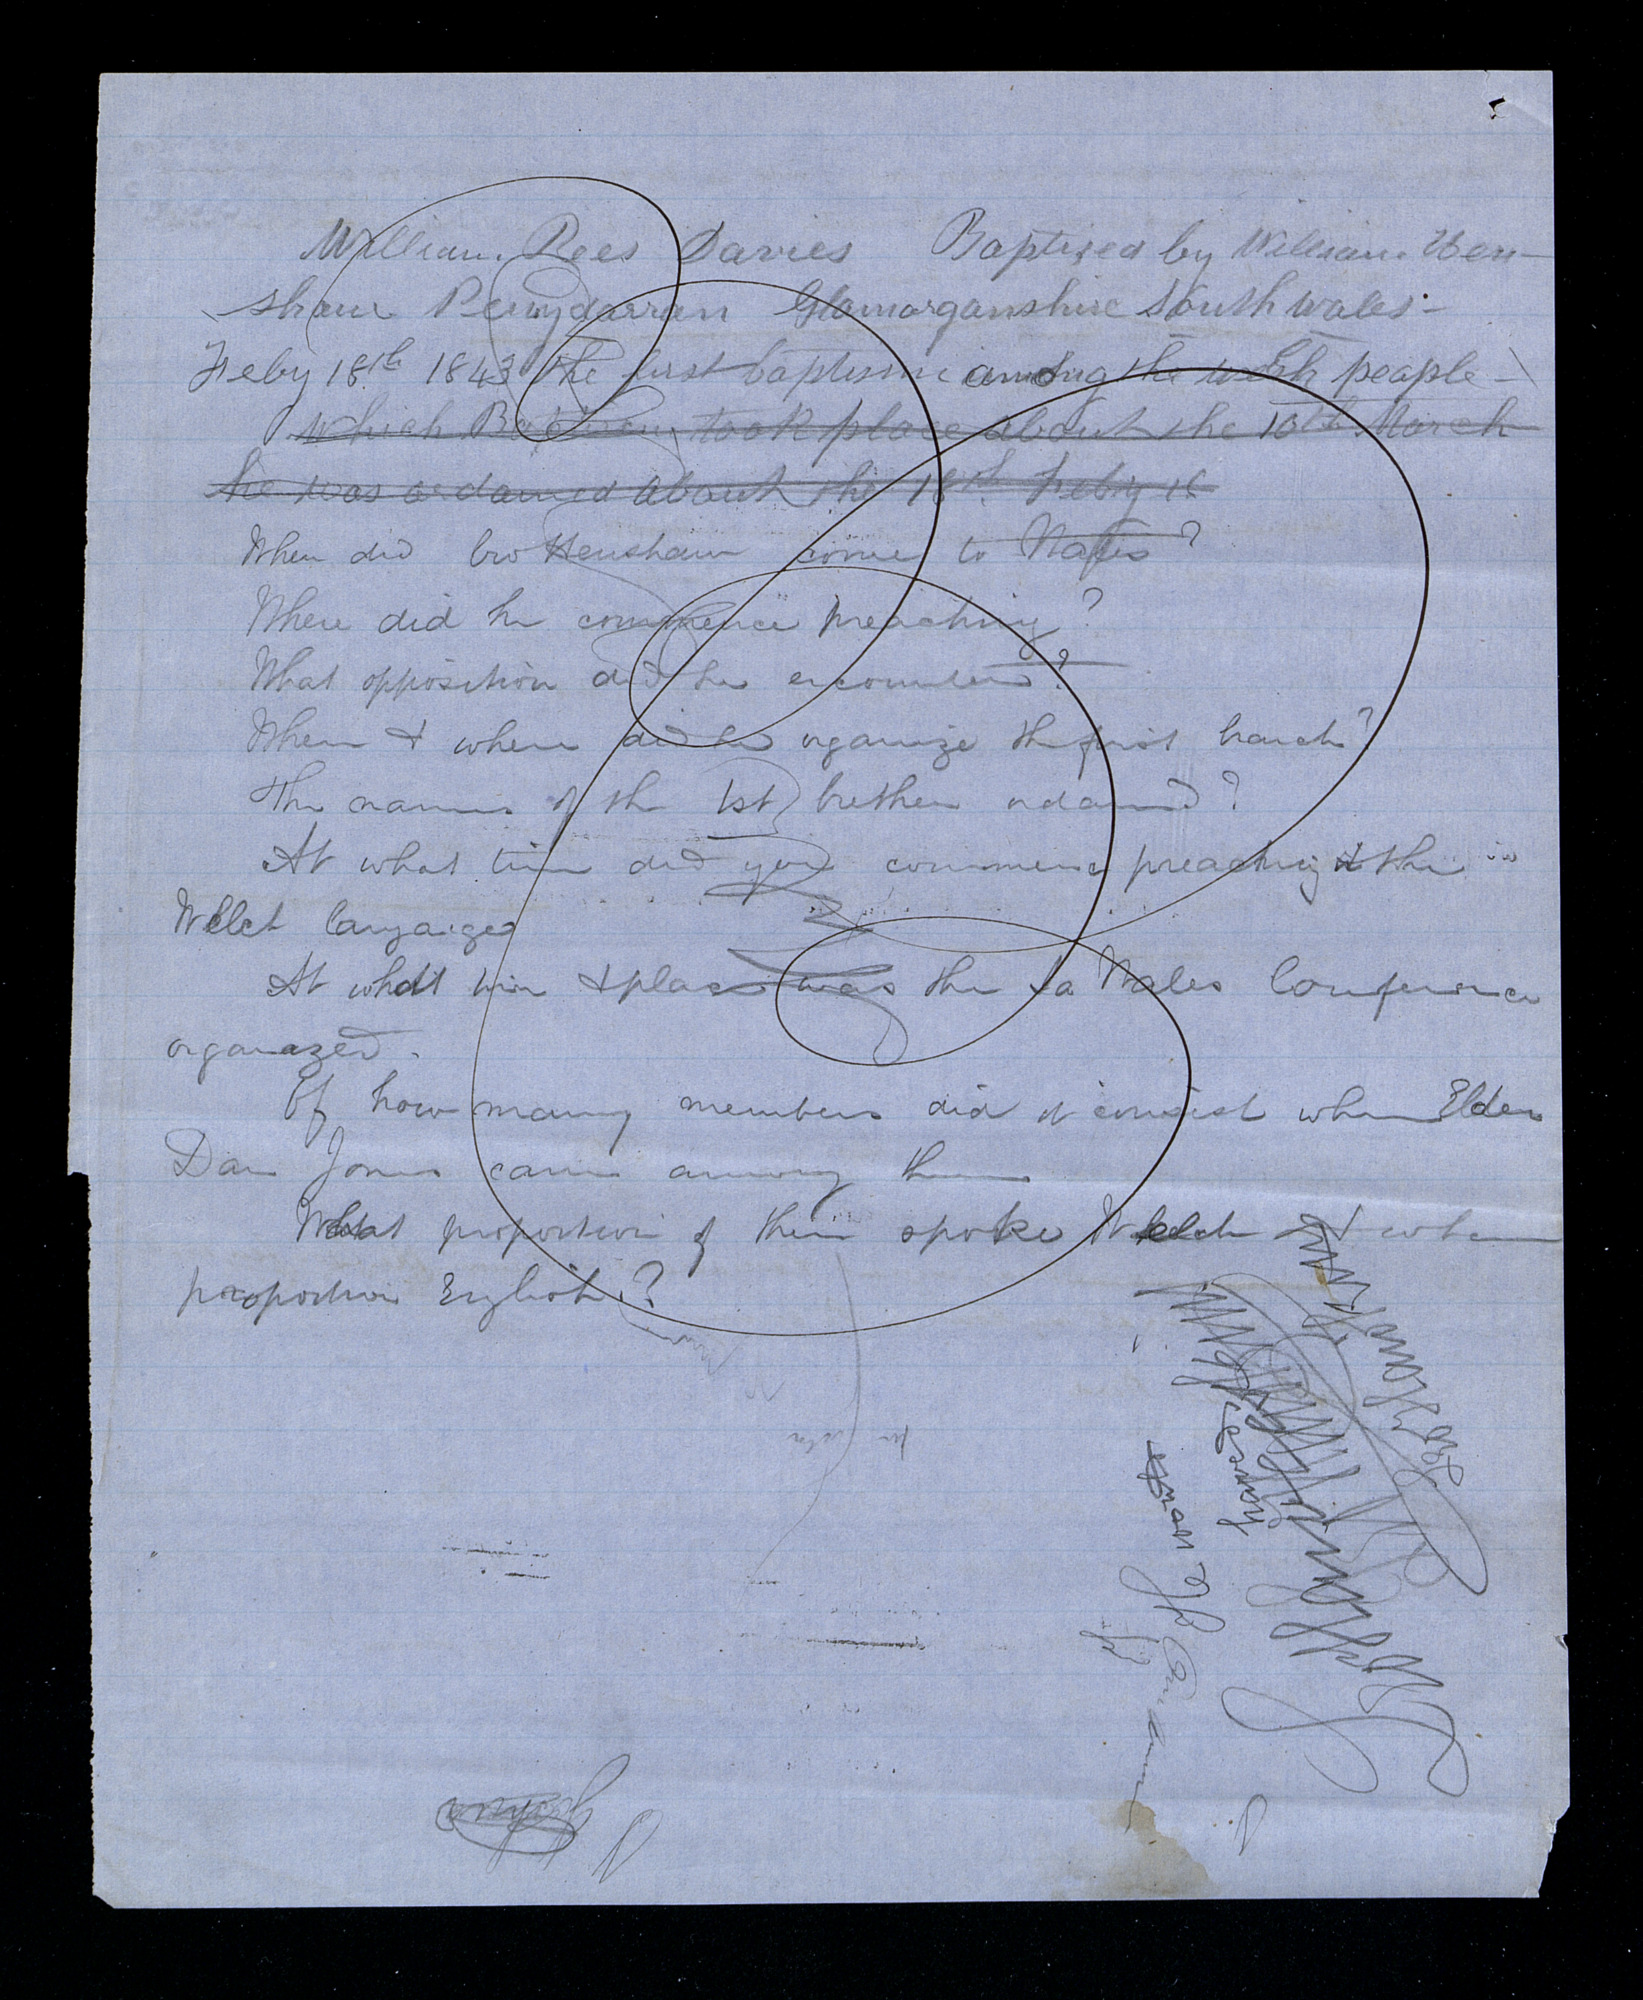 William Rees Davies Baptised by William Hen-
shaw Penydarran Glamorganshire South Wales -
Feby 18th 1843 the first baptism among the welsh people -
which Baptism took place about the 10th March
he was ordained about the 18th Feby 18
When did bro Henshaw come to Wales?
Where did he commence preaching?
What opposition did he encounter?
When & where did he organize the first branch?
The names of the 1st brethen ordained?
At what time did you commence preaching in the
Welch langaige
At what time & place was the So Wales Conference
organized.
Of how many members did it consist when Elder
Dan Jones came among them
What proportion of them spoke Welch & when
proportion English?